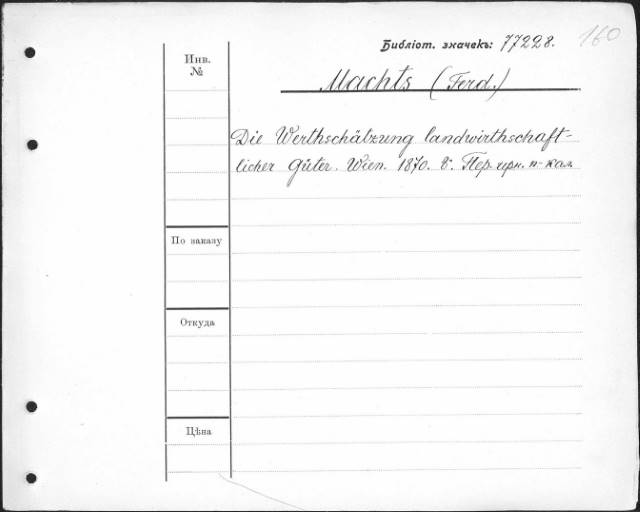 Библіот. значекъ: 77228. 160
Инв.
№
Machts (Ferd.)
Die Werthschätzung landwirthschaft-
licher Güter. Wien. 1870. 8. Пер. чрн. п-кал
По заказу
Откуда
Цѣна